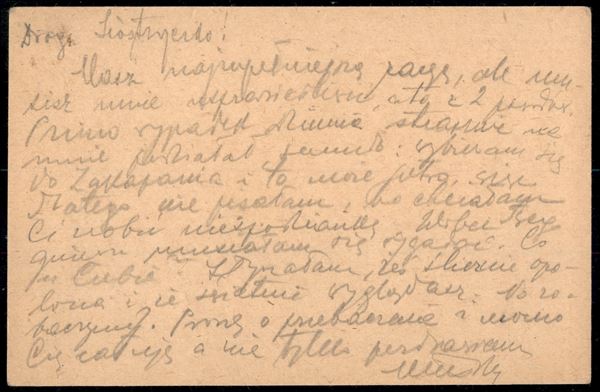 Droga Siostrzyczko!
Masz najzupełniejszą rację, ale mu-
sisz mnie usprawiedliwić, a to z 2 powodów.
Primo wypadek Niunia strasznie na
mnie podziałał, secundo: wybieram się
do Zakopanego i to może jutro, więc
dlatego nie pisałam, bo chciałam
Ci zrobić niespodziankę. Wobec tego
musiałam się wygadać. Co
u Ciebie? Słyszałam, żeś ślicznie opa-
lona i że świetnie wyglądasz. No zo-
baczymy? Proszę o przebaczenie i mocno
Cię całuję a nie tylko pozdrawiam